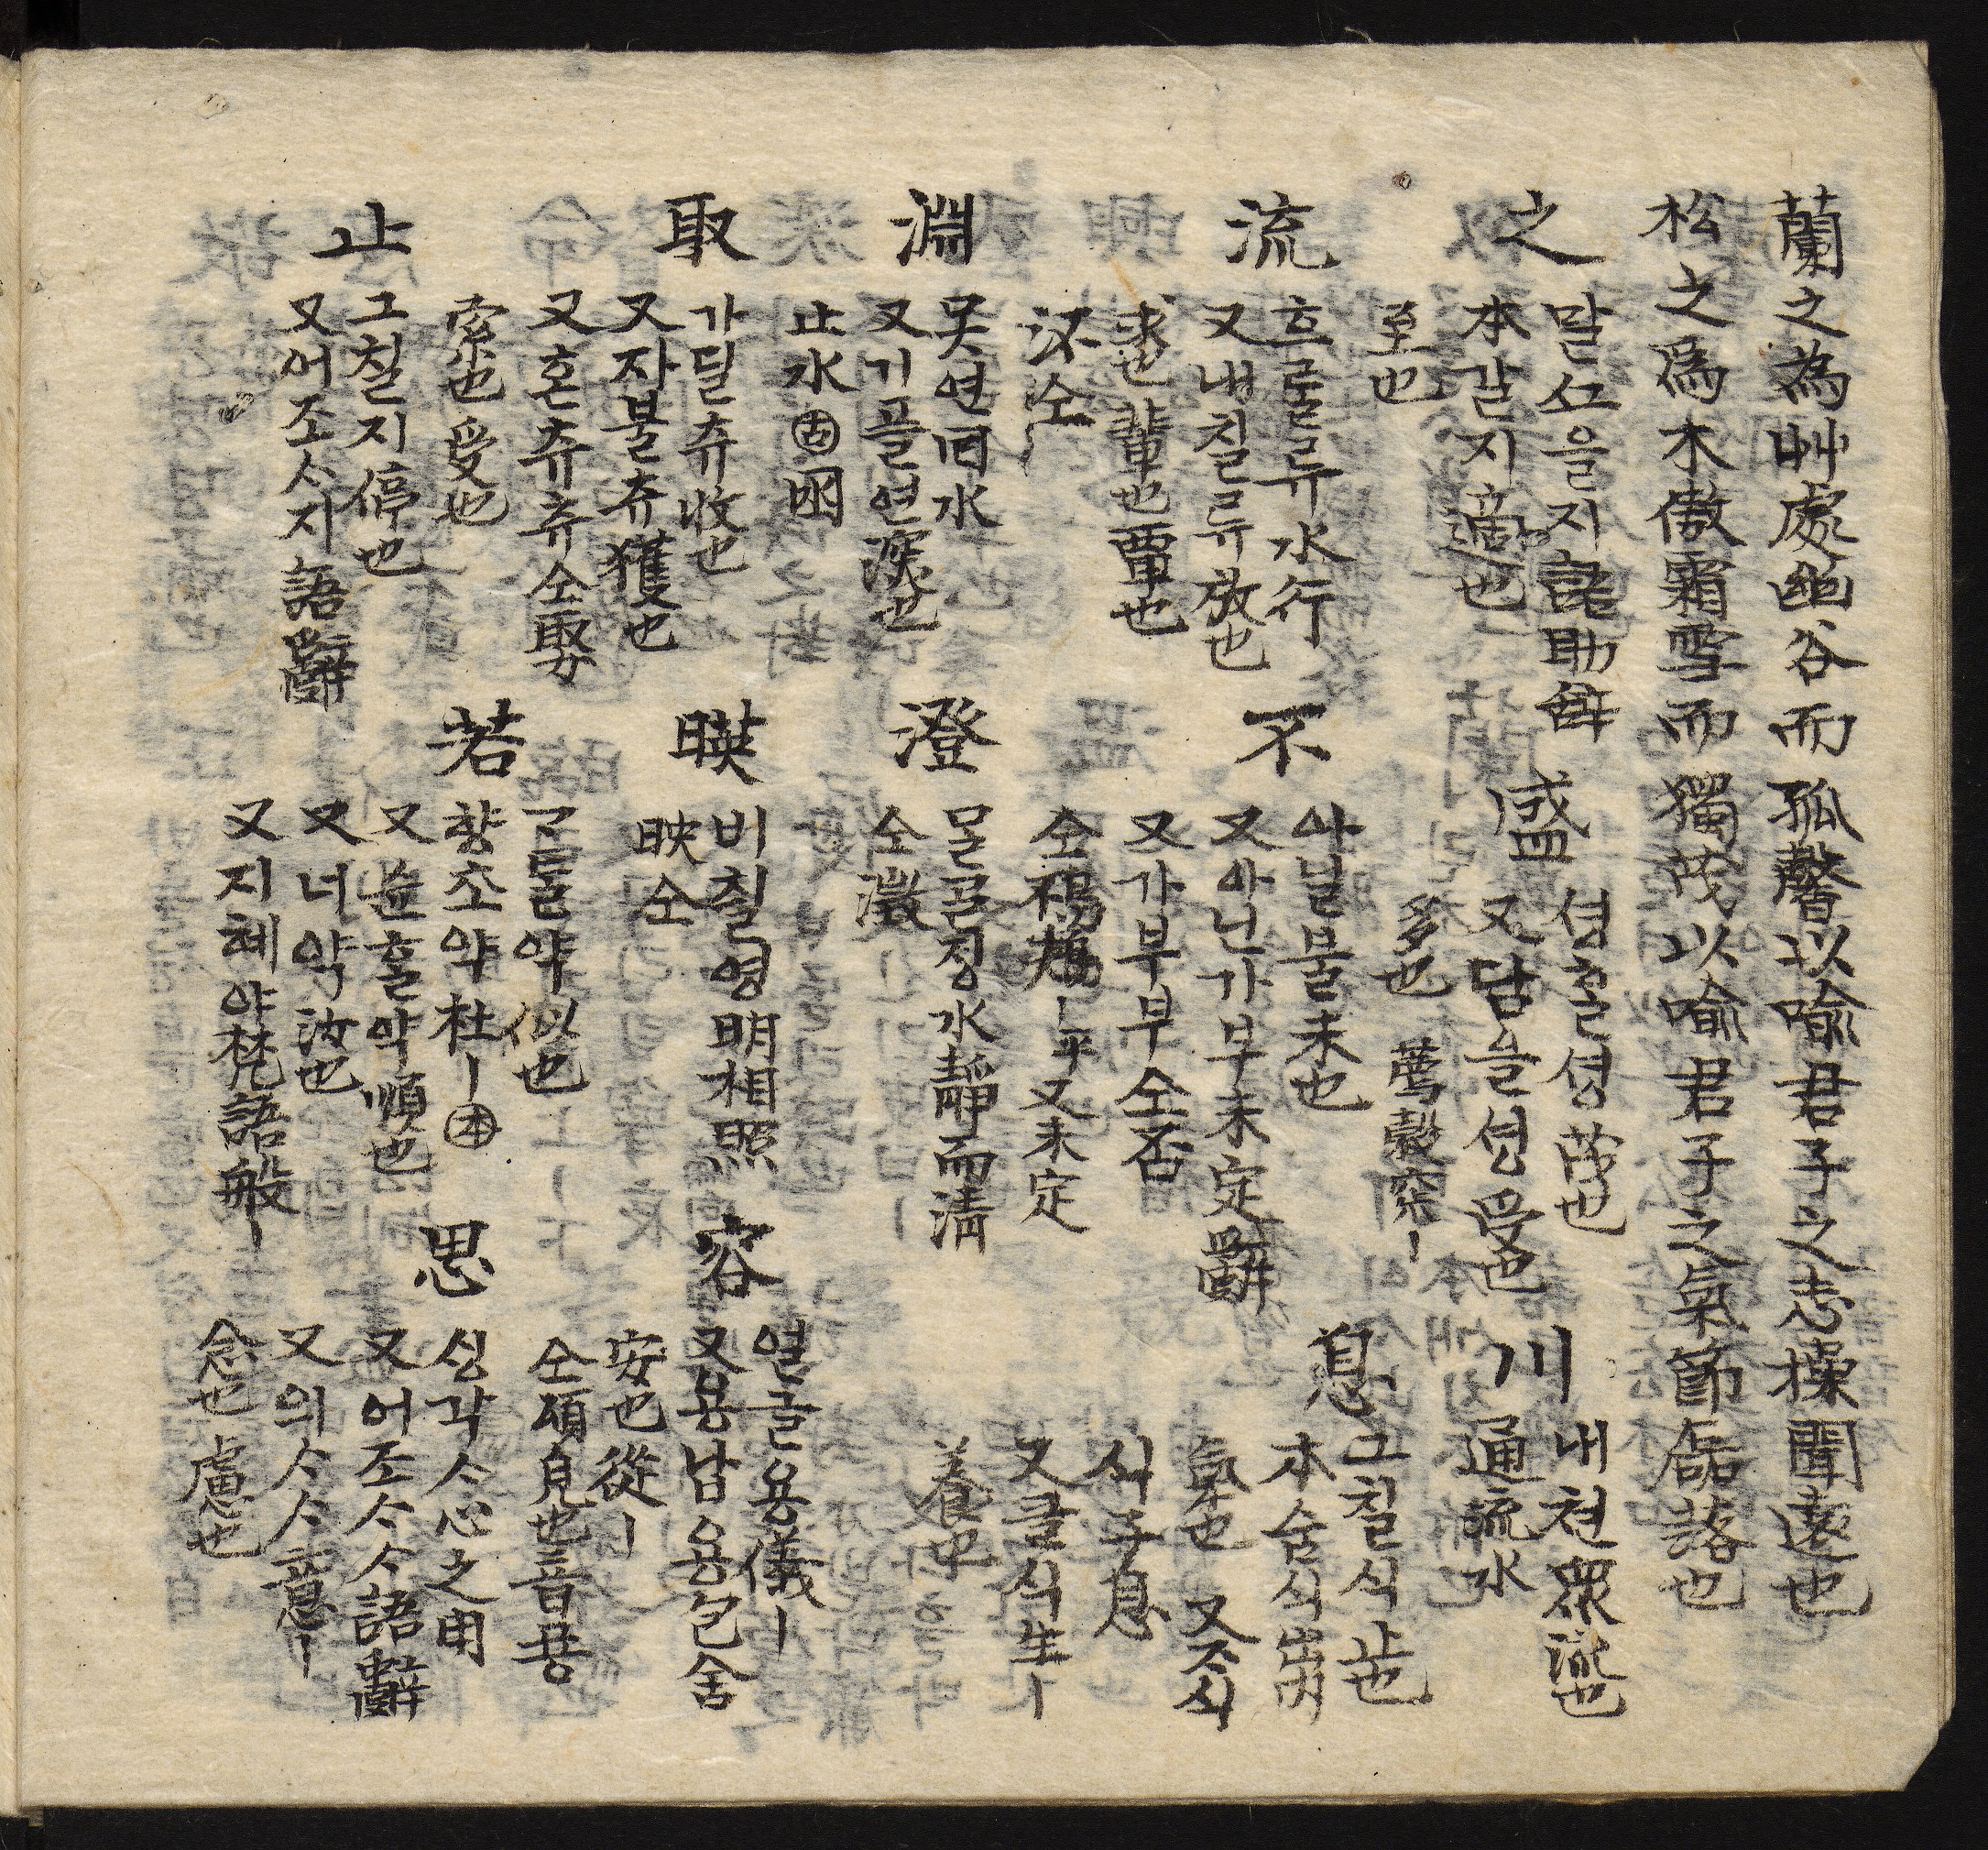 蘭之為艸處幽谷而孤馨以喩君子之志操聞遠也
松之爲木傲霜雪而獨茂以喩君子之氣節磊落也
之
말ᄉᆞᆷ을지語助辤
本갈지適也
至也
盛
셩홀셩茂也
又담을셩受也
多也
川
내쳔衆瀆也
通流水
流
흐를류水行
又내칠류放也
求也輩也覃也
不
아닐불未也
又아닌가부未定辭
又가부부仝否
平又未定
息
그칠식止也
本숨식出內
氣也 又ᄌᆞ식
식子息
又클식生ㅣ
養也
淵
못연回水
又기플연深也
止水 古 囦
澄
ᄆᆞᆯ글징水靜而淸
仝澂
取
가딜츄收也
又자블츄獲也
又혼츄츄仝娶
索也受也
暎
비췰영明相照
映仝
容
얼굴용儀ㅣ
又용납용包含
安也從ㅣ
仝頌皃也音용
止
그칠지停也
又어조ᄉᆞ지語辭
若
ᄀᆞᄐᆞᆯ약似也
향초약杜ㅣ 本
又슌홀약順也
又너약汝也
又지혜야梵語般ㅣ
思
ᄉᆡᆼ각ᄉᆞ心之用
又어조ᄉᆞᄉᆞ語辭
又의ᄉᆞᄉᆞ意ㅣ
念也 慮也